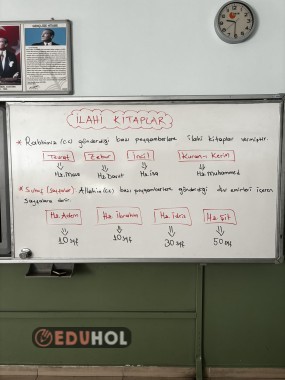 İLAHİ KİTAPLAR
* Rabbimiz (cc) gönderdiği bazı peygamberlere ilahi kitaplar vermiştir.
Tevrat Zebur İncil Kuran-ı Kerim
Hz. Musa Hz. Davut Hz. İsa Hz. Muhammed
* Suhuf (sayfalar) Allah'ın (cc) bazı peygamberlere gönderdiği emirleri içeren
sayfalara denir.
Hz. Adem Hz. İbrahim Hz. İdris Hz. Şit
10 syf 10 syf 30 syf 50 syf
EDUHOL